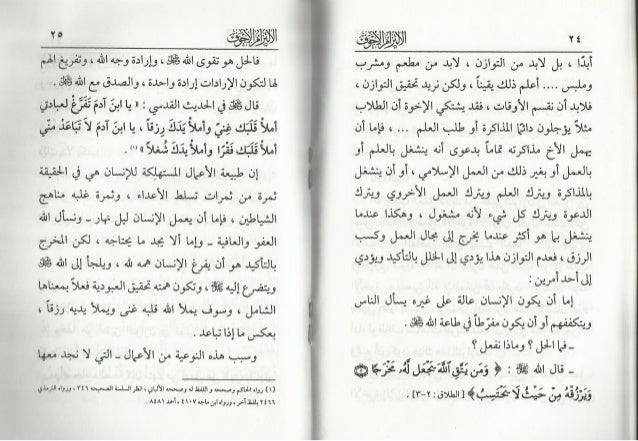 ٢٤
الالتزام الأجوف
أبدًا ، بل لابد من التوازن ، لابد من مطعم ومشرب
وملبس .... أعلم ذلك يقيناً ، ولكن نريد تحقيق التوازن ،
فلابد أن نقسم الأوقات ، فقد يشتكي الإخوة أن الطلاب
مثلاً يؤجلون دائمًا المذاكرة أو طلب العلم ... ، فإما أن
يهمل الأخ مذاكرته تمامًا بدعوى أنه ينشغل بالعلم أو
بالعمل أو بغير ذلك من العمل الإسلامي ، أو أن ينشغل
بالمذاكرة ويترك العلم ويترك العمل الأخروي ويترك
الدعوة ويترك كل شيء لأنه مشغول ، وهكذا عندما
ينشغل بما هو أكثر عندما يخرج إلى مجال العمل وكسب
الرزق ، فعدم التوازن هذا يؤدي إلى الخلل بالتأكيد ويؤدي
إلى أحد أمرين :
إما أن يكون الإنسان عالة على غيره يسأل الناس
ويتكففهم أو أن يكون مفرّطاً في طاعة الله ﷻ .
ـ فما الحل ؟ وماذا نفعل ؟
ـ قال الله ﷻ : ﴿ وَمَن يَتَّقِ ٱللَّهَ يَجْعَل لَّهُۥ مَخْرَجًا
وَيَرْزُقْهُ مِنْ حَيْثُ لَا يَحْتَسِبُ ﴾ [ الطلاق : ٢-٣] .
الالتزام الأجوف
٢٥
فالحل هو تقوى الله ﷻ ، وإرادة وجه الله ، وتفريغ الهم
لها لتكون الإرادات إرادة واحدة ، والصدق مع الله ﷻ .
قال ﷻ في الحديث القدسي : « يا ابنَ آدمَ تَفَرَّغْ لعبادتي
أملأْ قَلبَك غِنىً وأملأْ يَدَكَ رِزقاً ، يا ابنَ آدمَ لاَ تَبَاعَدْ منّي
أملأْ قَلبَكَ فَقْرًا وأملأْ يدَكَ شُغلاً » (١) .
إن طبيعة الأعمال المستهلِكة للإنسان هي في الحقيقة
ثمرة من ثمرات تسلط الأعداء ، وثمرة غلبه مناهج
الشياطين ، فإما أن يعمل الإنسان ليل نهار ـ ونسأل الله
العفو والعافية ـ وإما ألا يجد ما يحتاجه ، لكن المخرج
بالتأكيد هو أن يفرغ الإنسان همه لله ، ويلجأ إلى الله ﷻ
ويتضرع إليه ﷻ ، وتكون همته تحقيق العبودية فعلاً بمعناها
الشامل ، وسوف يملأ الله قلبه غنى ويملأ يديه رزقاً ،
بعكس ما إذا تباعد .
وسبب هذه النوعية من الأعمال ـ التي لا نجد معها
(١) رواه الحاكم وصححه و اللفظ له وصححه الألباني ، انظر السلسة الصحيحه ٣٤٦ ، ورواه الترمذي
٢٤٦٦ بلفظ آخر ، ورواه ابن ماجه ٤١٠٧ ، أحمد ٨٤٨١ .